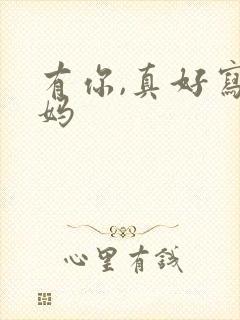 有你,真好寫
妈
心里有钱